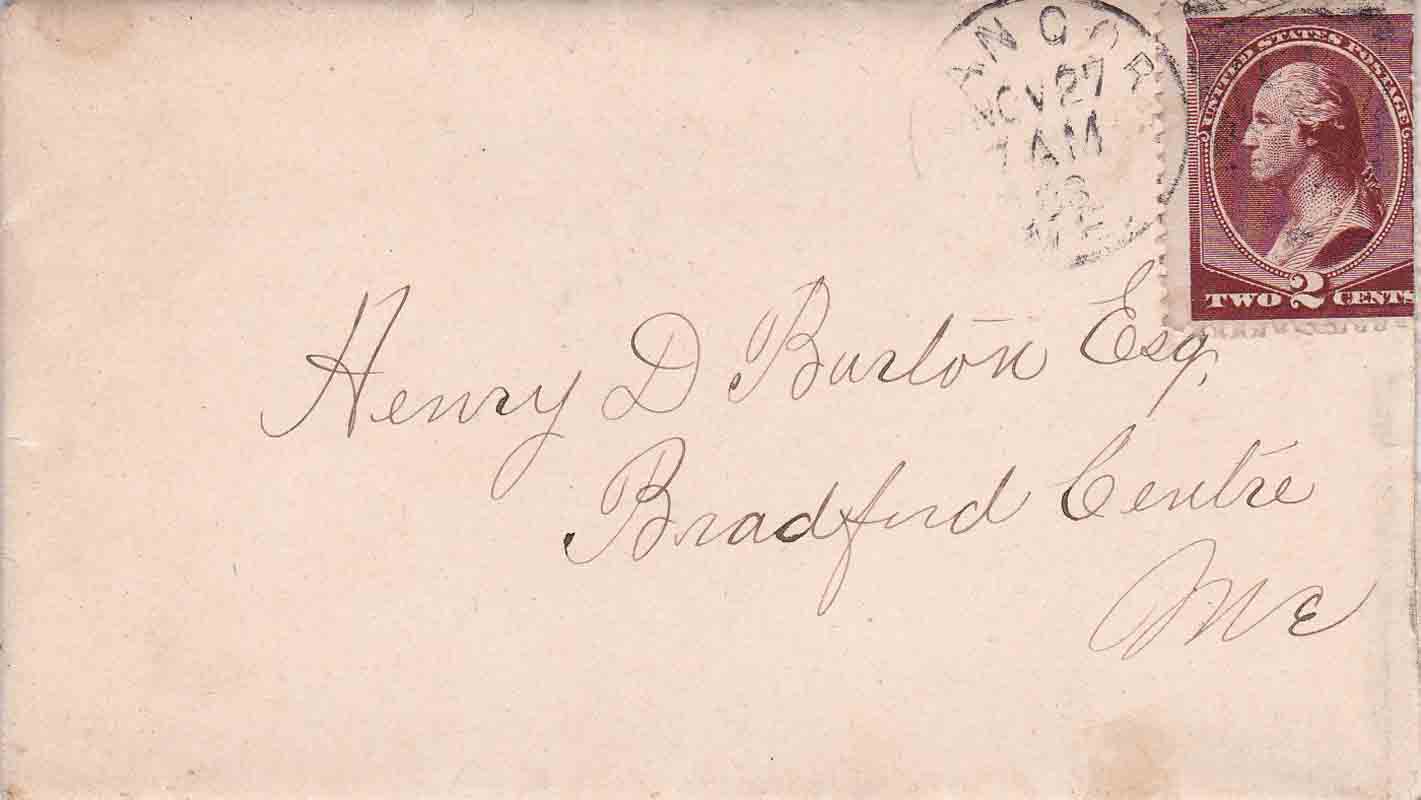 ANGOR
NOV 27
7 AM
ME
UNITED STATES POSTAGE
TWO 2 CENTS
Henry D Burton Esq.
Bradford Centre
Me